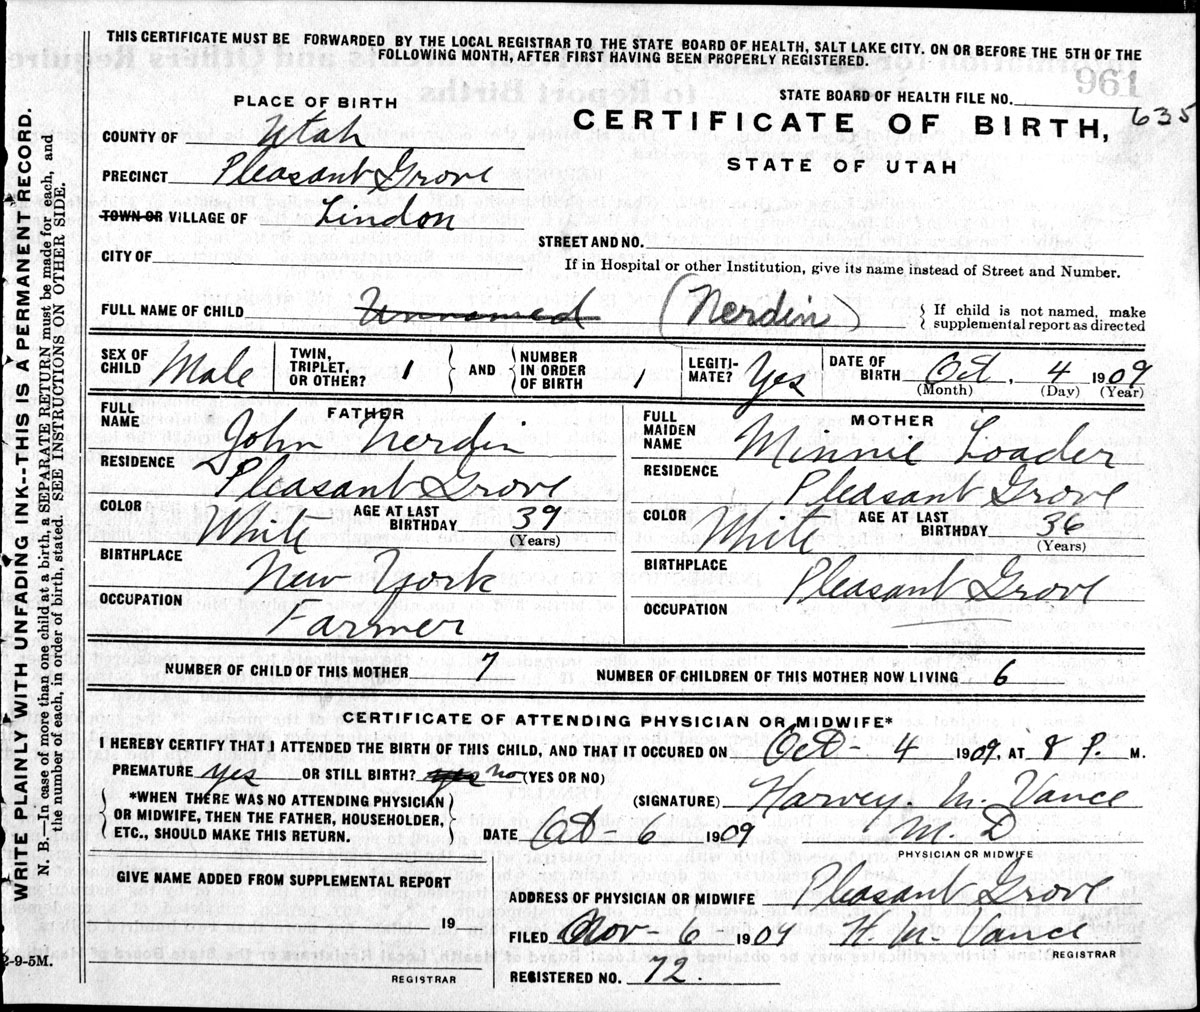 THIS CERTIFICATE MUST BE FORWARDED BY THE LOCAL REGISTRAR TO THE STATE BOARD OF HEALTH, SALT LAKE CITY. ON OR BEFORE THE 5TH OF THE
FOLLOWING MONTH, AFTER FIRST HAVING BEEN PROPERLY REGISTERED.
196
PLACE OF BIRTH
STATE BOARD OF HEALTH FILE NO. 635
COUNTY OF Utah
CERTIFICATE OF BIRTH,
STATE OF UTAH
PRECINCT Pleasant Grove
TOWN OR VILLAGE OF Lindon
STREET AND NO.
CITY OF
If in Hospital or other Institution, give its name instead of Street and Number.
FULL NAME OF CHILD Unnamed (Nerdin)
If child is not named, make
supplemental report as directed
SEX OF CHILD Male
TWIN, TRIPLET, OR OTHER? 1
AND
NUMBER IN ORDER OF BIRTH 1
LEGITI-MATE? Yes
DATE OF BIRTH Oct, 4 1909
(Month) (Day) (Year)
FATHER
FULL NAME John Nerdin
RESIDENCE Pleasant Grove
COLOR White AGE AT LAST BIRTHDAY 39
(Years)
BIRTHPLACE New York
OCCUPATION Farmer
MOTHER
FULL MAIDEN NAME Minnie Loader
RESIDENCE Pleasant Grove
COLOR White AGE AT LAST BIRTHDAY 36
(Years)
BIRTHPLACE Pleasant Grove
OCCUPATION
NUMBER OF CHILD OF THIS MOTHER 7 NUMBER OF CHILDREN OF THIS MOTHER NOW LIVING 6
CERTIFICATE OF ATTENDING PHYSICIAN OR MIDWIFE*
I HEREBY CERTIFY THAT I ATTENDED THE BIRTH OF THIS CHILD, AND THAT IT OCCURED ON Oct - 4 1909. AT 8 P. M.
PREMATURE yes OR STILL BIRTH? yes No (YES OR NO)
*WHEN THERE WAS NO ATTENDING PHYSICIAN
OR MIDWIFE, THEN THE FATHER, HOUSEHOLDER,
ETC., SHOULD MAKE THIS RETURN.
(SIGNATURE) Harvey M. Vance
DATE Oct - 6 1909 M. D
PHYSICIAN OR MIDWIFE
GIVE NAME ADDED FROM SUPPLEMENTAL REPORT
ADDRESS OF PHYSICIAN OR MIDWIFE Pleasant Grove
19
FILED Nov - 6 1909 H. M. Vance
REGISTRAR
REGISTRAR
REGISTERED NO. 72.
2-9-5M.
WRITE PLAINLY WITH UNFADING INK--THIS IS A PERMANENT RECORD.
N. B.—In case of more than one child at a birth, a SEPARATE RETURN must be made for each, and
the number of each, in order of birth, stated. SEE INSTRUCTIONS ON OTHER SIDE.